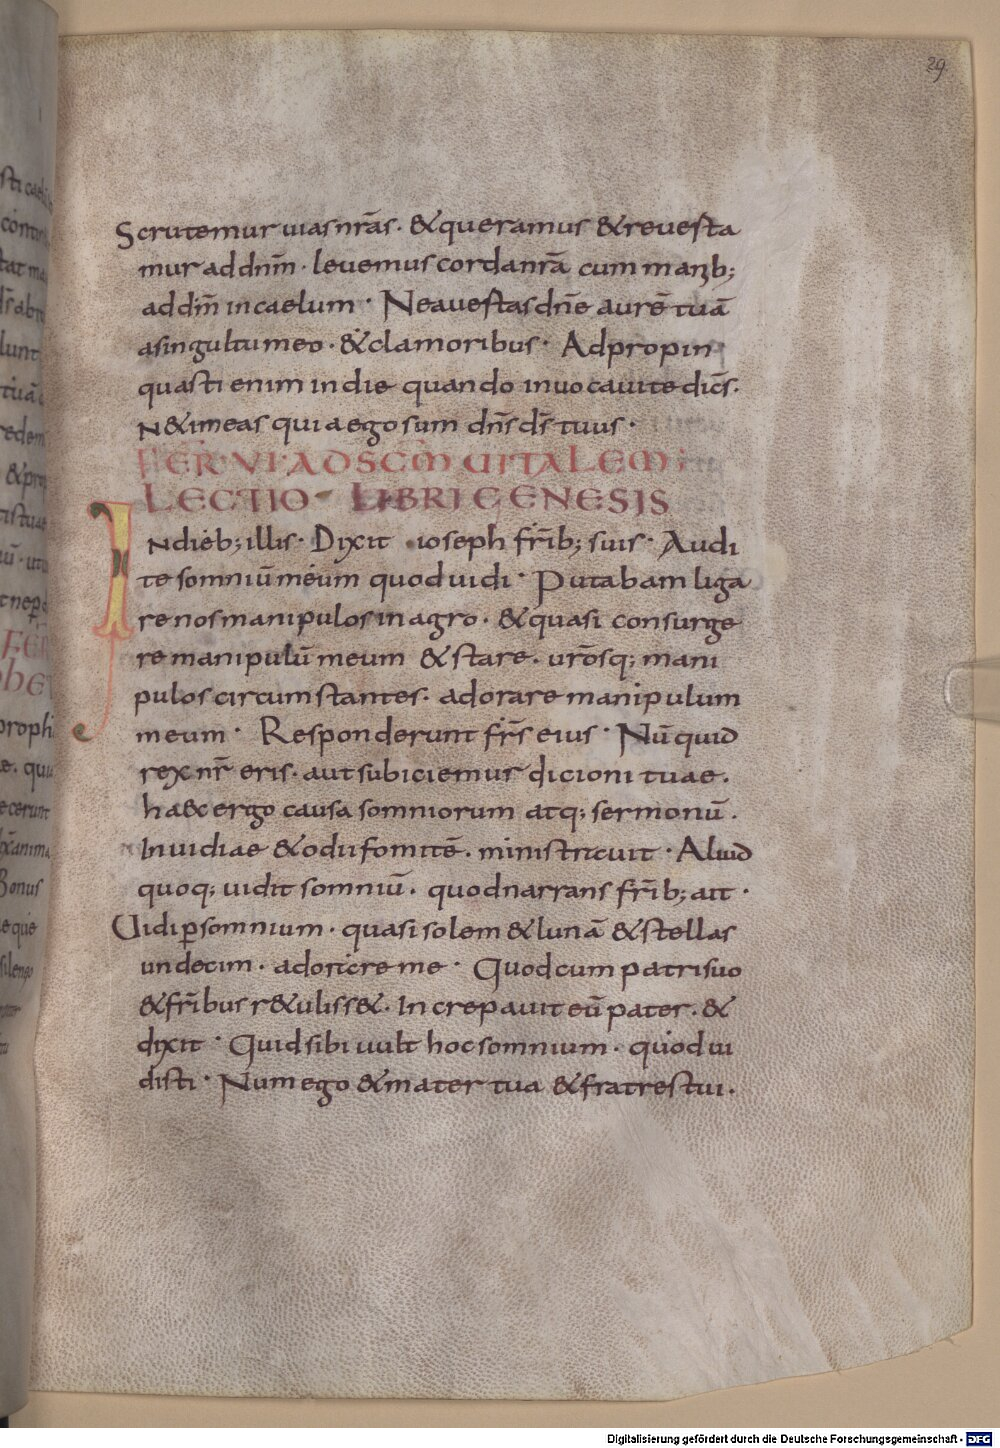 29
Scrutemur uias nr̄as · & queramus & reuerta
mur ad dnm̄ · leuemus corda nr̄a cum manib;
ad dn̄m in caelum · Ne auertas dn̄e aurē tuā
a singultu meo · & clamoribus · Adpropin
quasti enim in die quando inuocaui te dicēs ·
N& imeas quia ego sum dn̄s ds̄ tuus ·
FER · VI · AD SC̄M UITALEM :
LECTIO LIBRI GENESIS
IN dieb; illis · Dixit ioseph fr̄ib; suis · Audi
te somniū meum quod uidi · Putabam liga
re nos manipulos in agro · & quasi consurge
re manipulū meum & stare · urōsq; mani
pulos circumstantes · adorare manipulum
meum · Responderunt fr̄s eius · Nū quid
rex nr̄ eris · aut subiciemur dicioni tuae ·
haec ergo causa somniorum atq; sermonū ·
Inuidiae & odii fomitē · ministrauit · Aliud
quoq; uidit somniū · quod narrans fr̄ib; ait ·
Uidi ꝑ somnium · quasi solem & lunā & stellas
undecim · adorare me · Quod cum patri suo
& fr̄ibus r&uliss& · Increpauit eū pater · &
dixit · Quid sibi uult hoc somnium · quod ui
disti · Num ego & mater tua & fratres tui ·
Digitalisierung gefördert durch die Deutsche Forschungsgemeinschaft - DFG